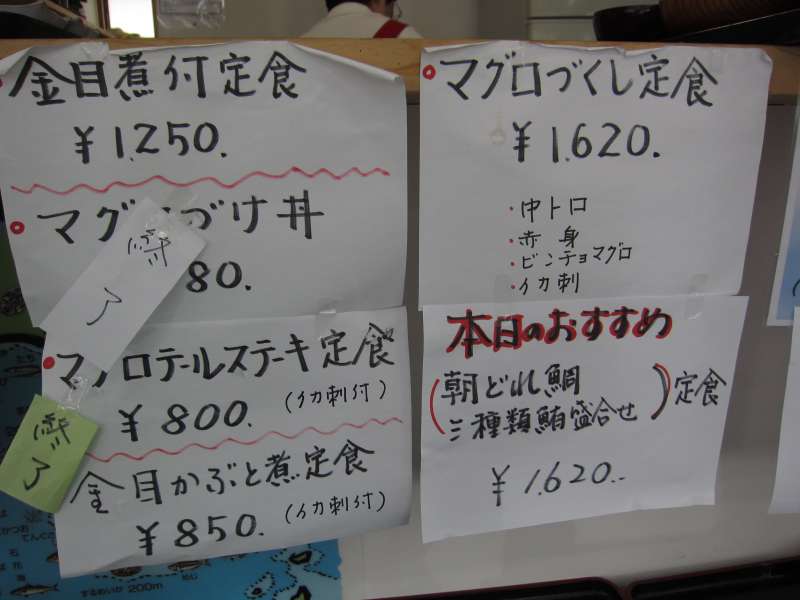 金目煮付定食
¥1.250.
マグ づけ丼
80.
終
了
マグロテールステーキ定食
¥800. (イカ刺付)
終
了
金目かぶと煮定食
¥850. (イカ刺付)
マグロづくし定食
¥1.620.
・中トロ
・赤身
・ビンチョマグロ
・イカ刺
本日のおすすめ
(朝どれ鯛
三種類鮪盛合せ)定食
¥1.620..
するめいか 200m